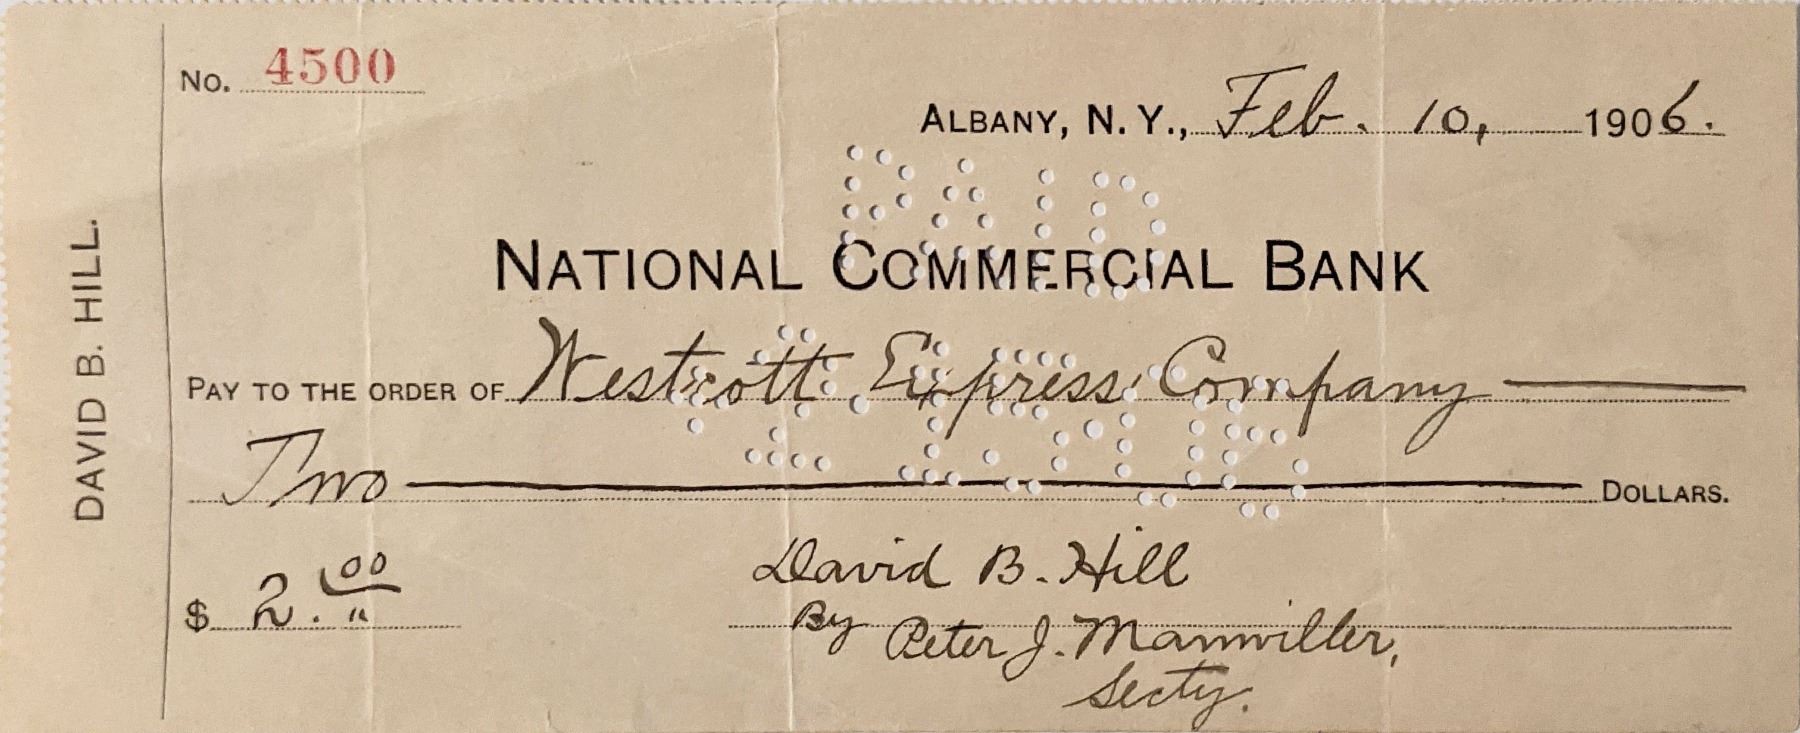 No. 4500
ALBANY, N. Y., Feb. 10, 1906.
PAID
NATIONAL COMMERCIAL BANK
PAY TO THE ORDER OF Westcott Express Company
Two DOLLARS.
$ 2.00
David B. Hill
By Peter J. Manwiller,
Secty.
DAVID B. HILL.